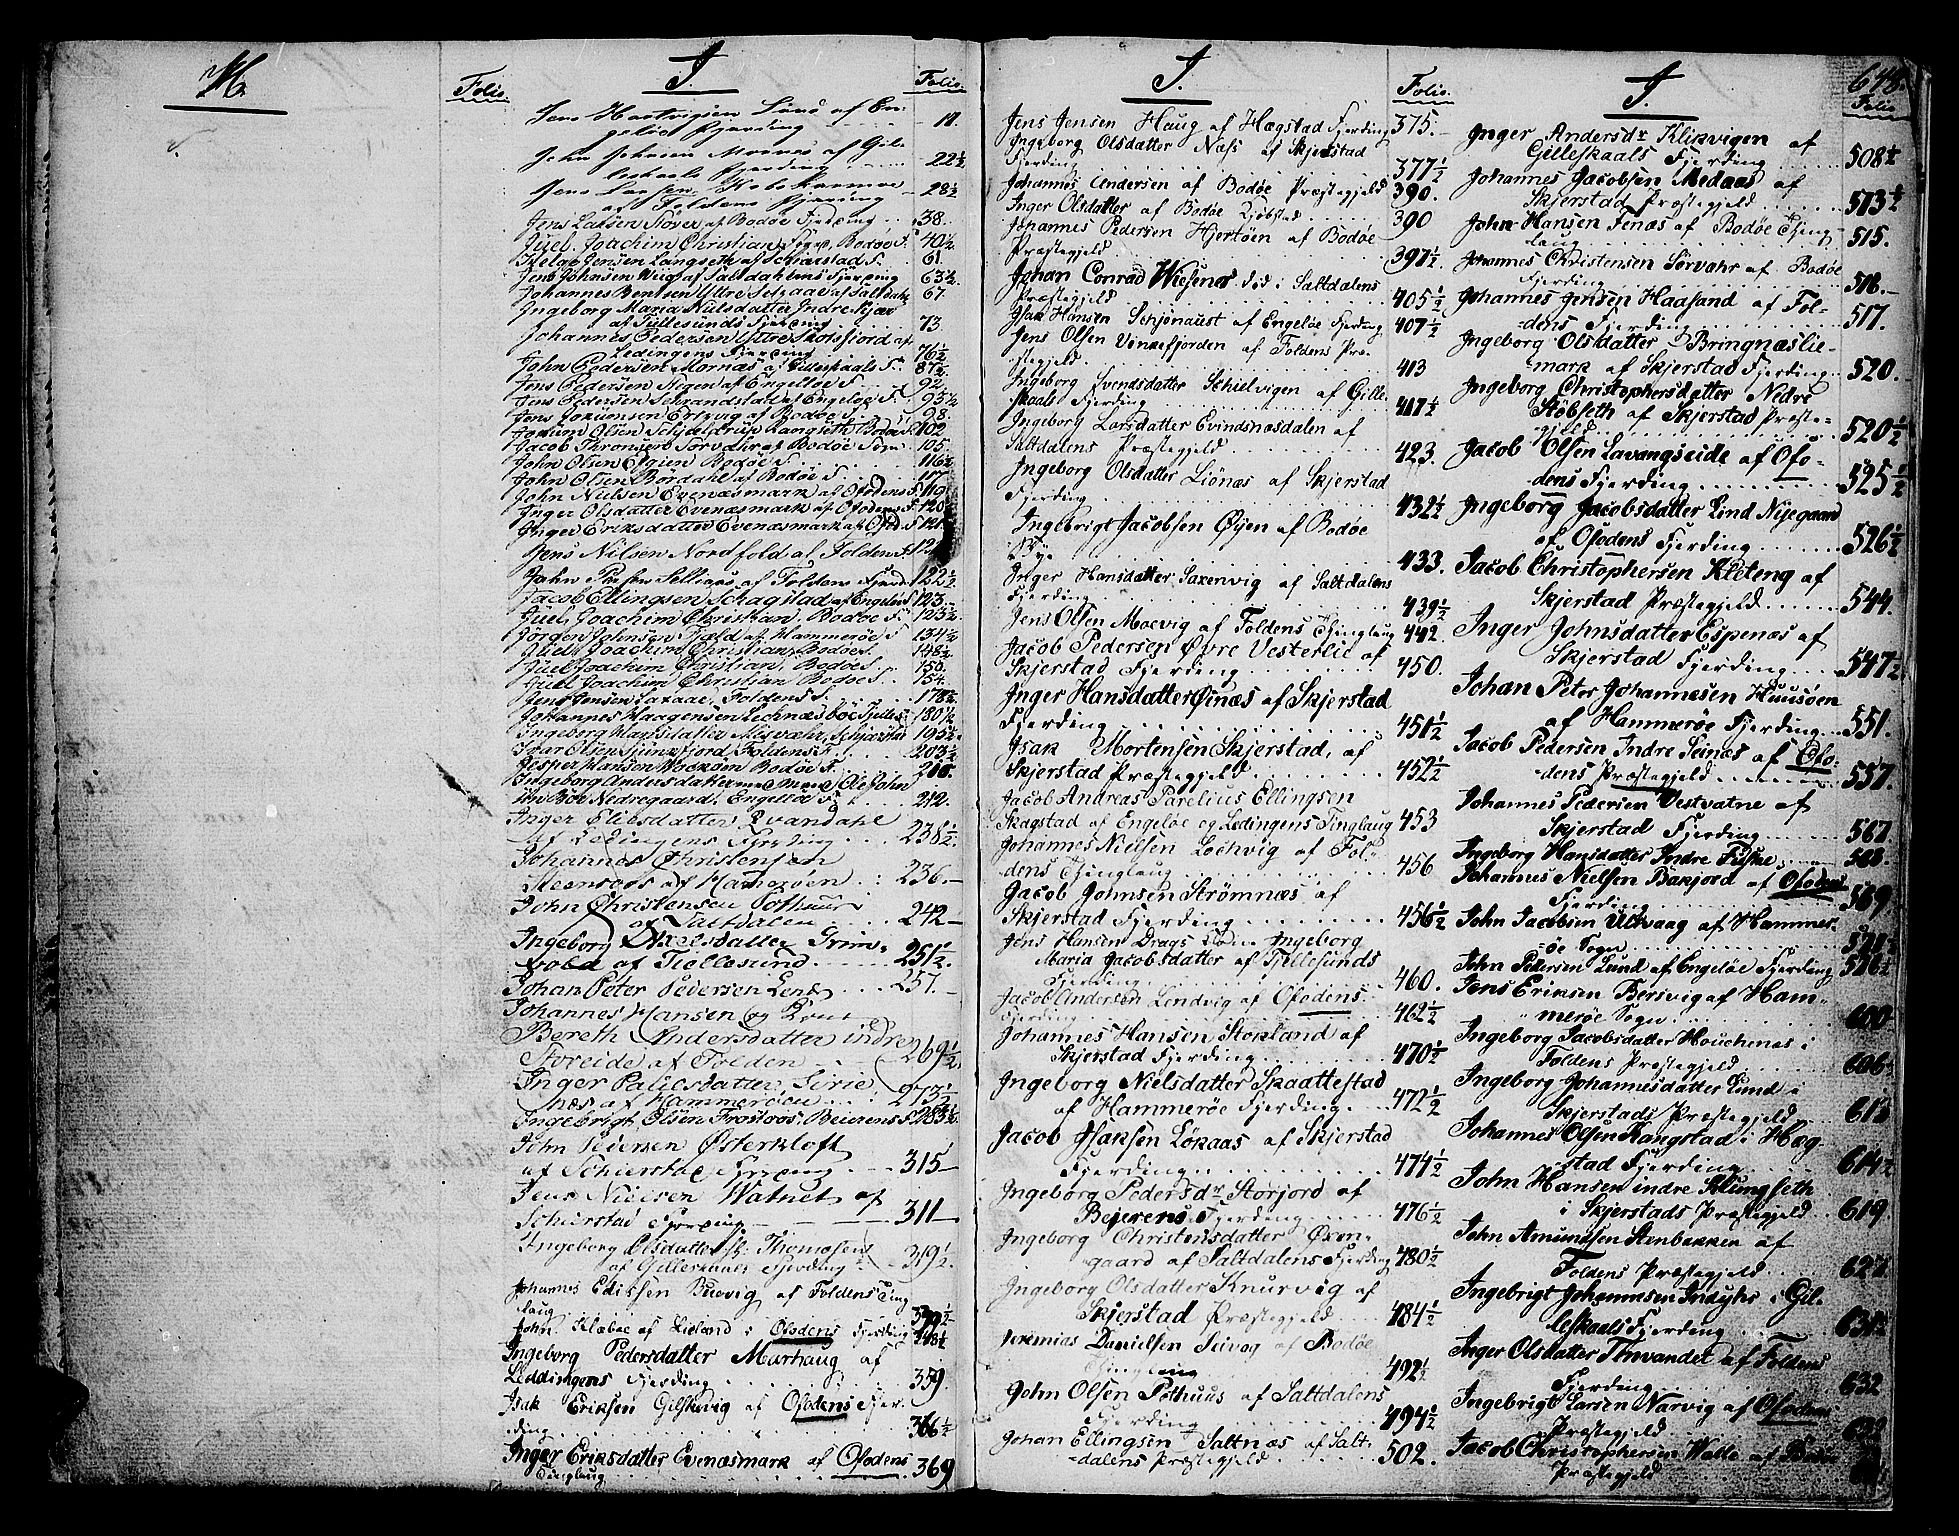 H.
Folio.
I.
Folio.
Jens Hartvigsen Lund af En-
geløe Fjerding 11.
John Johnsen Mornes af Gil-
leskaals Fjerding 22½
Jens Larsen
af Foldens Fjerding 28½
Jens Larsen Løver af Bodøe Fjerding 38.
Juel Joachim Christian Bodøe F. 40½
Helge Jensen Langseth af Schierstad F. 61.
Jens Johnsen af Saltdahlens Fjerding 63½
Johannes Bentsen Ytre af Saltdahl 67.
Ingeborg Maria Nilsdatter Indre
af Tillesunds Fjerding 73.
Johannes Pedersen Yttre Skotsfjord af
Lødingens Fjerding 76½
John Pedersen Mornæs af Gilleskaals F. 87½
Jens Pedersen af Engeløe F. 92.
Jens Pedersen Strandstad af Engeløe F. 95½
Jens af Bodøe F. 98.
Olsen Schieldrup Langseth Bodøe F. 102
Jacob Thronsen Sørvahr af Bodøe Sogn 105.
John Olsen Bodøe F. 116½
John Olsen Bordahl af Bodøe F. 117.
John Nielsen Evenæsmark af Ofodens F. 119
Inger Olsdatter Evenæsmark af Ofodens F. 120
Inger Eriksdatter Evenæsmark af Ofod. F. 121.
Jens Nilsen Nordfold af Foldens F.
John af Foldens Fjerd. 122½
Jacob Ellingsen Schagstad af Engeløe F. 123.
Juel Joachim Christian, Bodøe F. 123½
Jørgen Johnsen Fjeld af Hammerøe F. 134½
Juel, Joachim Christian, Bodøe F. 145½
Juel Joachim Christian, Bodøe F. 150.
Juel Joachim Christian Bodøe F. 154.
Jens Jensen Foldens F. 178½
Johannes Haagensen 180½
Ingeborg Misvahr, Schjerstad 195½
Iver Olsen Foldens F. 203½
Jesper Hansen Bodøe F.
Ingeborg Andersdatter Ole John
Bøe Nedregaard, Engeløe F. 212.
Inger Elibsdatter Qvandahl
af Lødingens Fjerding 236½
Johannes Christensen
af Hamerøen 236.
John Christensen Pothuus
af Saltdalen 242
Ingeborg Axelsdatter Grim-
af Tiellesund 251½
Johan Peter Pedersen 257.
Johannes Hansen og
Bereth Andersdatter indre
af Folden 269½
Inger Paulsdatter,
næs af Hammerøen 273½
Ingebrigt Olsen Beierens F. 283½
John Peiersen Østerkloft
af Schierstad Fjerding 315
Jens Nielsen Vatnet af
Schierstad Fjerding 311
Ingeborg Olsdatter Thomæsens
af Gilleskaals Fjerding 319½
Johannes Edissen Buevig af Foldens Ting
laug
John Klæboe af Lieland i Ofodens Fjerding 348½
Ingeborg Pedersdatter Marhaug af
Leddingens Fjerding 359.
Isak Eriksen Gilskevig af Ofodens Fjer-
ding 366½
Inger Eriksdatter Evenæsmark af Ofodens
Thinglaug 369
I.
Folio.
Jens Jensen Haug af Hægstad Fjerding 375.
Ingeborg Olsdatter Næss af Skjerstad
Fjerding 377½
Johannes Andersen af Bodøe Præstegjeld 390.
Inger Olsdatter af Bodøe Kjøbstad 390
Johannes Pedersen Hjertøen af Bodøe
Præstegjeld 397½
Johan Conrad Wiesener død i Saltdalens
Præstegjeld 405½
Isak Hansen Schjønauest af Engeløe Fjerding 407½
Jens Olsen Vinkefjorden af Foldens Præ-
stegjeld 413
Ingeborg Svendsdatter Schielvigen af Gille-
skaals Fjerding 417½
Ingeborg Larsdatter Evindnæsdalen af
Saltdalens Præstegjeld 423.
Ingeborg Olsdatter Liønæs af Skjerstad
Fjerding 432½
Ingebrigt Jacobsen Øyen af Bodøe
Bye 433.
Inger Hansdatter Saxenvig af Saltdalens
Fjerding 439½
Jens Olsen Moevig af Foldens Thinglaug 442.
Jacob Pedersen Øvre Vesterlie af
Skjerstad Fjerding 450.
Inger Hansdatter Øinæs af Skjerstad
Fjerding 451½
Isak Mortensen Skjerstad, af
Skjerstad Præstegjeld 452½
Jacob Andreas Parelius Ellingsen
Skagstad af Engeløe og Ledingens Tinglaug 453
Johannes Nielsen Lochvig af Fol-
dens Thinglaug 456
Jacob Johnsen Strømnæs af
Skjerstad Fjerding 456½
Jens Hansen Drags Kone Ingeborg
Maria Jacobsdatter af Tjellesunds
Fjerding 460.
Jacob Andersen Lendvig af Ofodens
Fjerding 462½
Johannes Hansen Storland af
Skjerstad Fjerding 470½
Ingeborg Nielsdatter Skaattestad
af Hammerøe Fjerding. 472½
Jacob Isaksen Løkaas af Skjerstad
Fjerding 474½
Ingeborg Pedersdr Storjord af
Bejerens Fjerding 476½
Ingeborg Christensdatter Øxen-
gaard af Saltdalens Fjerding 480½
Ingeborg Olsdatter Knurvig af
Skjerstad Præstegjeld 484½
Jeremias Danielsen Seivog af Bodøe
Thinglaug 492½
John Olsen Pothuus af Saltdalens
Fjerding 494½
Johan Ellingsen Saltnæs af Salt-
dalens Præstegjeld 502.
I.
644.
Folio
Inger Andersdr Klikvigen af
Gilleskaals Fjerding 508½
Johannes Jacobsen Medaas af
Skjerstad Præstegjeld 513½
John Hansen Fenæs af Bodøe Thing-
laug 515.
Johannes Christensen Sørvahr af Bodøe
Fjerding 516.
Johannes Jensen Haasand af Fol-
dens Fjerding 517.
Ingeborg Olsdatter Bringnæslie-
mark af Skjerstad Fjerding 520.
Ingeborg Christophersdatter Nedre
Støbseth af Skjerstad Præste-
gjeld 520½
Jacob Olsen Lavangseide af Ofo-
dens Fjerding 525½
Ingeborg Jacobsdatter Lind Niegaard
af Ofodens Fjerding 526½
Jacob Christophersen Kleteng af
Skjerstad Præstegjeld 544.
Inger Johnsdatter Espenæs af
Skjerstad Fjerding 547½
Johan Peter Johannesen Huusøen
af Hammerøe Fjerding 551.
Jacob Pedersen Indre Seinæs af Ofo-
dens Præstegjeld 557.
Johannes Pedersen Vestvatne af
Skjerstad Fjerding 567.
Ingeborg Hansdatter Indre Fiske
Johannes Nielsen Bakjord af Ofodens
Fjerding 569
John Jacobsen Uldvaag af Hammer-
øe Sogn
John Pedersen Lund af Engeløe Fjerding
Jens Eriksen Bersvig af Ham-
merøe Sogn 600
Ingeborg Jacobsdatter Houchenæs i
Foldens Præstegjeld 606½
Ingeborg Johannesdatter Lund i
Skjerstads Præstegjeld
Johannes Olsen Kangstad i Hæg-
stad Fjerding 614½
John Hansen indre Klungseth
i Skjerstads Præstegjeld 619.
John Amundsen Stenbakken af
Foldens Præstegjeld 627.
Ingebrigt Johannesen Indyhr i Gil-
leskaals Fjerding
Inger Olsdatter Tenvandet af Foldens
Fjerding 632
Ingebrigt Larsen Narvig af Ofodens
Præstegjeld
Jacob Christophersen Valle af Bodøe
Præstegjeld